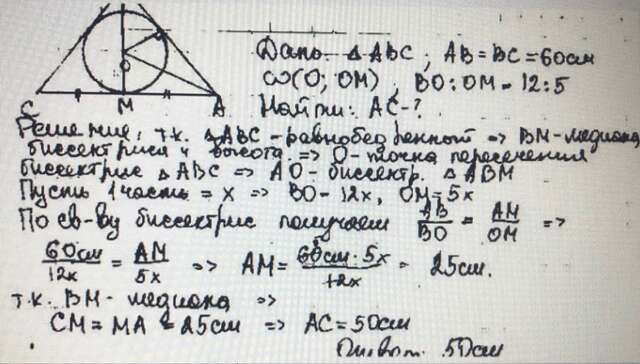 Дано: △ABC; AB=BC=60см
ω(O; OM), BO:OM=12:5
Найти: AC-?
O
C M A
Решение: т.к. △ABC - равнобедренный => BM - медиана
биссектриса и высота => O - точка пересечения
биссектрис △ABC => AO - биссектр. △ABM
Пусть 1 часть = x => BO - 12x, OM = 5x
По св-ву биссектрис получаем AB/BO = AM/OM =>
60см/12x = AM/5x => AM = 60см · 5x/12x = 25см.
т.к. BM - медиана =>
CM = MA = 25см => AC = 50см
Ответ: 50см